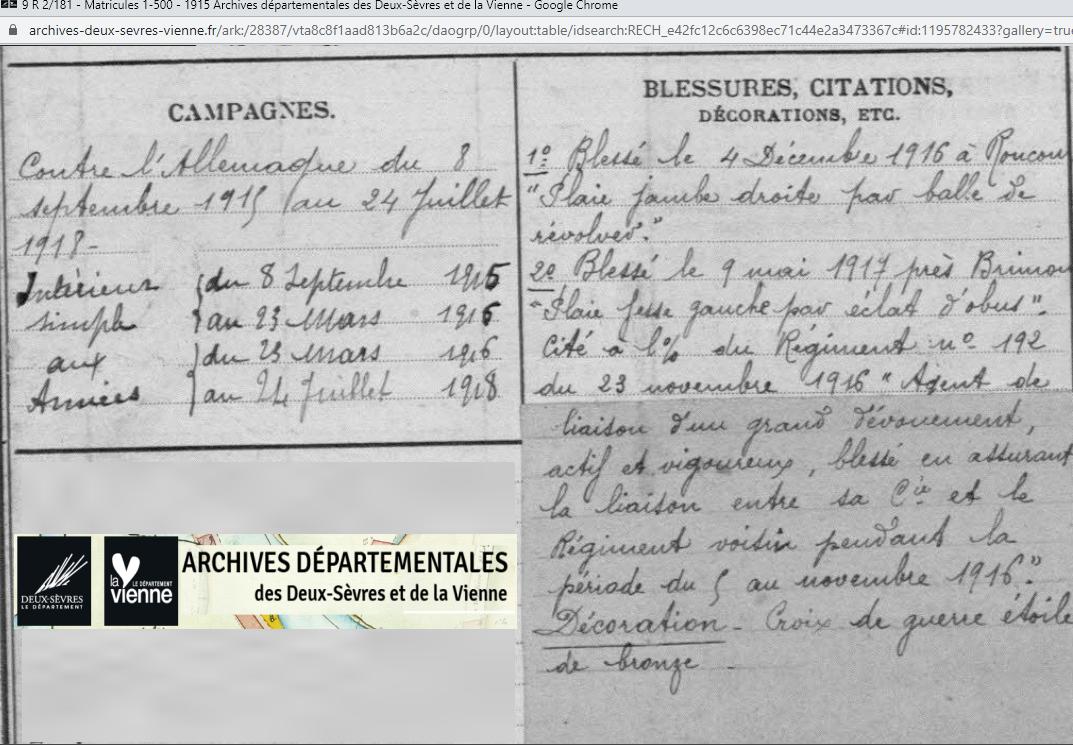 9 R 2/181 - Matricules 1-500 - 1915 Archives départementales des Deux-Sèvres et de la Vienne - Google Chrome
archives-deux-sevres-vienne.fr/ark:/28387/vta8c8f1aad813b6a2c/daogrp/0/layout:table/idsearch:RECH_e42fc12c6c6398ec71c44e2a3473367c#id:1195782433?gallery=true
CAMPAGNES.
Contre l'Allemagne du 8
septembre 1915 au 24 Juillet
1918-
Intérieur du 8 Septembre 1915
simple au 23 Mars 1916
aux du 23 Mars 1916
Armées au 24 Juillet 1918
BLESSURES, CITATIONS,
DÉCORATIONS, ETC.
1º Blessé le 4 Décembre 1916 à Roucour
"Plaie jambe droite par balle de
révolver."
2º Blessé le 9 mai 1917 près Brimon
"Plaie fesse gauche par éclat d'obus".
Cité à l'% du Régiment nº 192
du 23 novembre 1916 "Agent de
liaison d'un grand dévouement,
actif et vigoureux, blessé en assurant
la liaison entre sa Cie et le
Régiment voisin pendant la
période du 5 au novembre 1916."
Décoration - Croix de guerre étoile
de bronze -
DEUX-SÈVRES
LE DÉPARTEMENT
la
LE DÉPARTEMENT
vienne
ARCHIVES DÉPARTEMENTALES
des Deux-Sèvres et de la Vienne